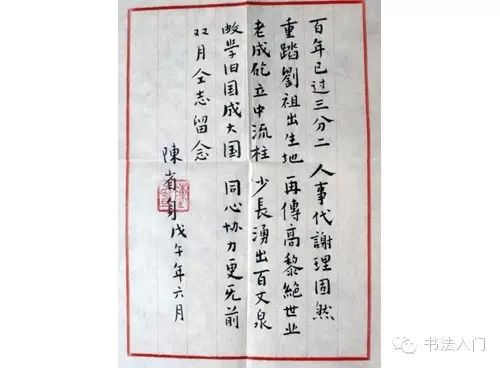 百年已过三分二 人事代謝理固然
重踏劉祖出生地 再傳高黎絕世业
老成矻立中流柱 少長湧出百丈泉
学旧国成大国 同心协力更无前
双月仝志留念
陳省身 戊午年六月
书法入门